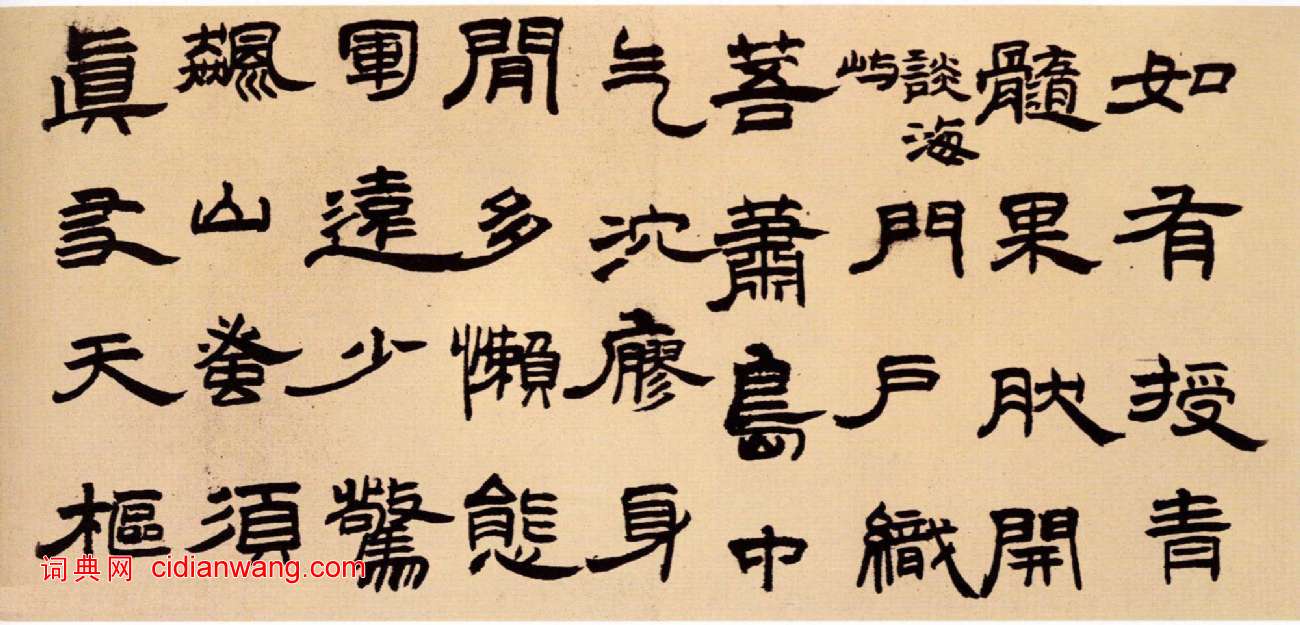 如有授青
髓果肰開
談海嶼門戶織
蕭島中
气沈廖身
閒多懶態
軍遠少驚
飆山須
眞天樞
词典网 cidianwang.com